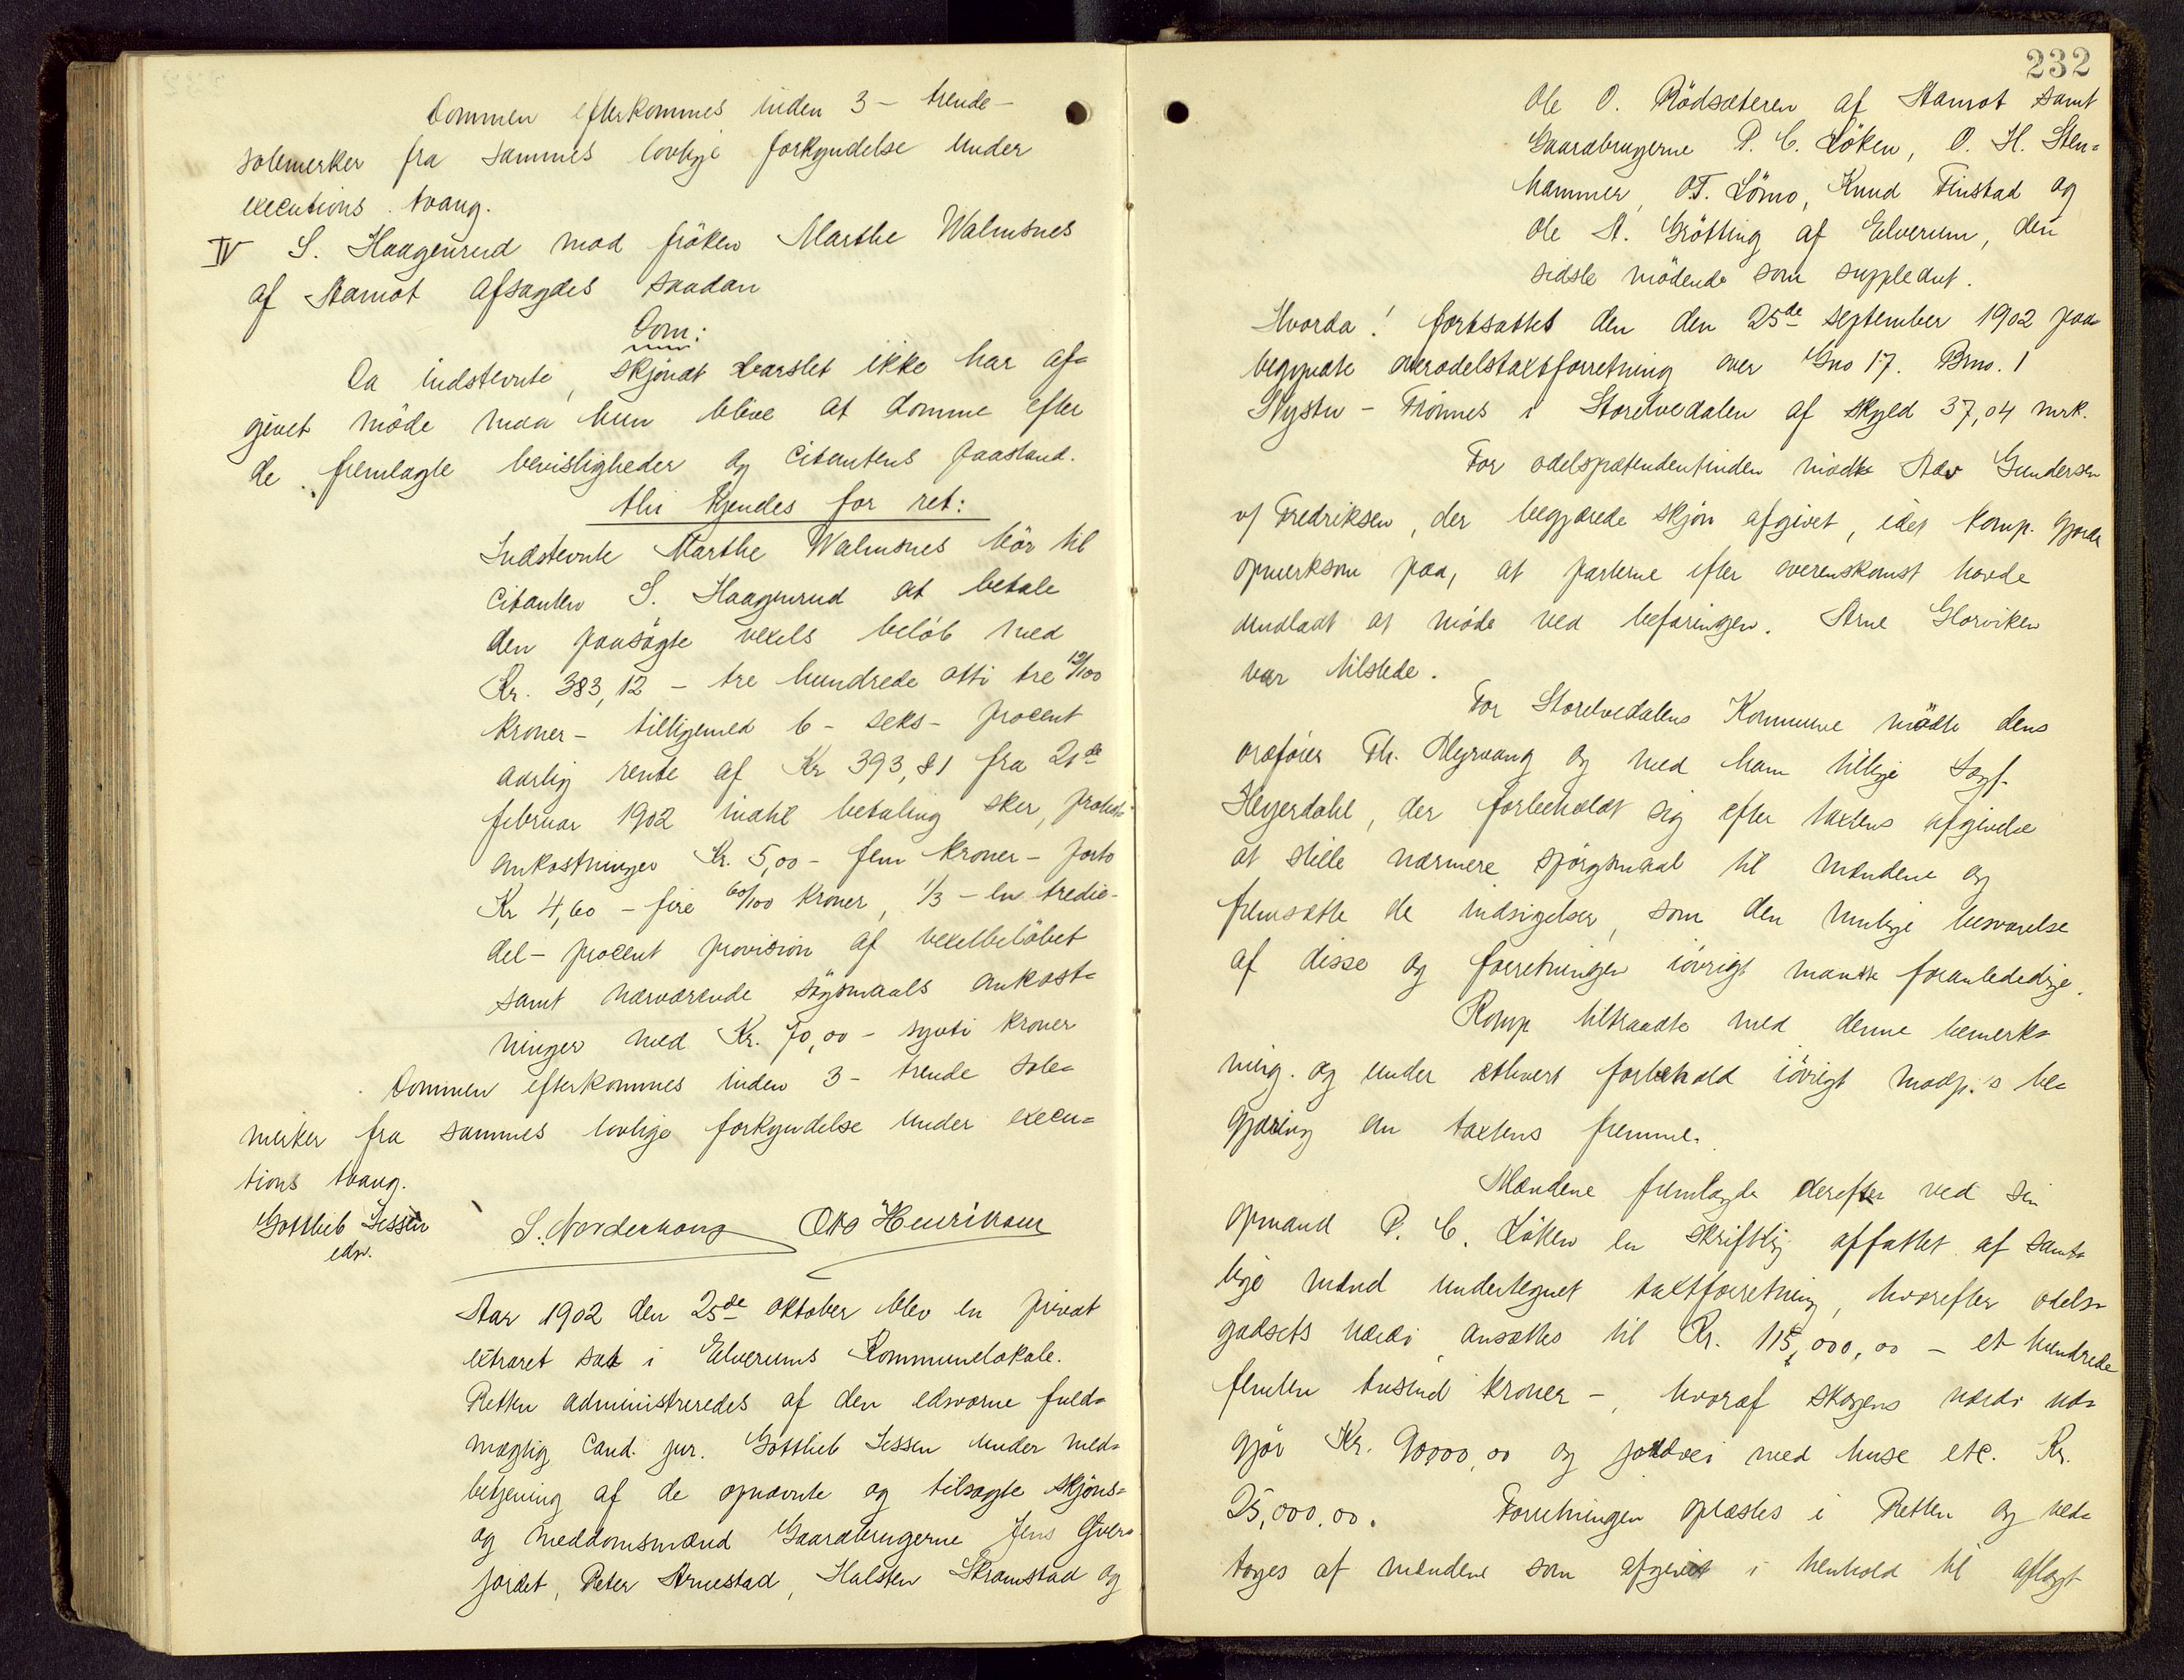 Dommen efterkommes inden 3 – trende –
solemerker fra sammes lovlige forkyndelse under
executions tvang.
IV S. Haagenrud mod frøken Marthe Walmsnes
af Aamot afsagdes saadan
Dom:
Da indstevnte, skjøndt varslet ikke har af-
givet møde maa hun blive at domme efter
de fremlagte bevisligheder og Citantens paastand.
thi kjendes for ret:
Indstevnte Marthe Walmsnes bør til
Citanten S. Haagenrud at betale
den paasøgte vexels beløb med
Kr. 383,12 – tre hundrede otti tre 12/100
kroner – tilligemed 6 – seks – procent
aarlig rente af Kr 393,81 fra 21de
februar 1902 indtil betaling sker, protest-
omkostninger Kr. 5,00 – fem kroner – porto
Kr 4,60 – fire 60/100 kroner, 1/3 – en tredie-
del – procent provision af vexelbeløbet
samt nærværende søgsmaals omkost-
ninger med Kr. 70,00 – sytti kroner
Dommen efterkommes inden 3 – trende sole-
merker fra sammes lovlige forkyndelse under execu-
tions tvang.
Gottlieb Jessen S. Norderhaug Otto Henriksen
edsv.
Aar 1902 den 25de oktober blev en privat
extraret sat i Elverums Kommunelokale.
Retten administreredes af den edsvorne fuld-
mægtig Cand. jur. Gottlieb Jessen under med-
betjening af de opnævnte og tilsagte skjøns-
og meddomsmænd Gaardbrugerne Jens Gver-
jordet, Peter Arnestad, Halsten Stromstad og
232
Ole O. Rödsæteren af Aamot samt
Gaardbrugerne P. C. Löken, O. H. Sten-
hammer, O.T. Lömo, Knud Finstad og
Ole A. Grötting af Elverum, den
sidste mödende som suppleant.
Hvorda! fortsattes den den 25de september 1902 paa-
begyndte overodelstaxtforretning over Gno 17. Brno. 1
Nystu – Trönnes i Storelvedalen af skyld 37,04 mrk.
For odelsprætendentinden mødte Adv Gundersen
v/ Fredriksen, der begjærede skjøn afgivet, idet komp. gjorde
opmerksom paa, at parterne efter overenskomst havde
undladt at møde ved befaringen. Arne Glorviken
var tilstede.
For Storelvedalens Kommune mødte dens
ordfører Th. Myrvang og med ham tillige Sagf.
Heyerdahl, der forbeholdt sig efter taxtens afgivelse
at stille nærmere spørgsmaal til mændene og
fremsætte de indsigelser, som den mulige besvarelse
af disse og forretningen iøvrigt maatte foranledige.
Komp tiltraadte med denne bemerk-
ning og under ethvert forbehold iøvrigt modp.'s be-
gjæring om taxtens fremme.
Mændene fremlagde derefter ved sin
opmand P. C. Löken en skriftlig affattet af samt-
lige mænd undertegnet taxtforretning, hvorefter odels-
godsets værdi ansattes til Kr. 115,000,00 – et hundrede
femten tusind kroner –, hvoraf skogens værdi ud-
gjør Kr. 90000,00 og jordvei med huse etc. Kr.
25,000.00. Forretningen oplæstes i Retten og ved-
toges af mændene som afgivet i henhold til aflagt